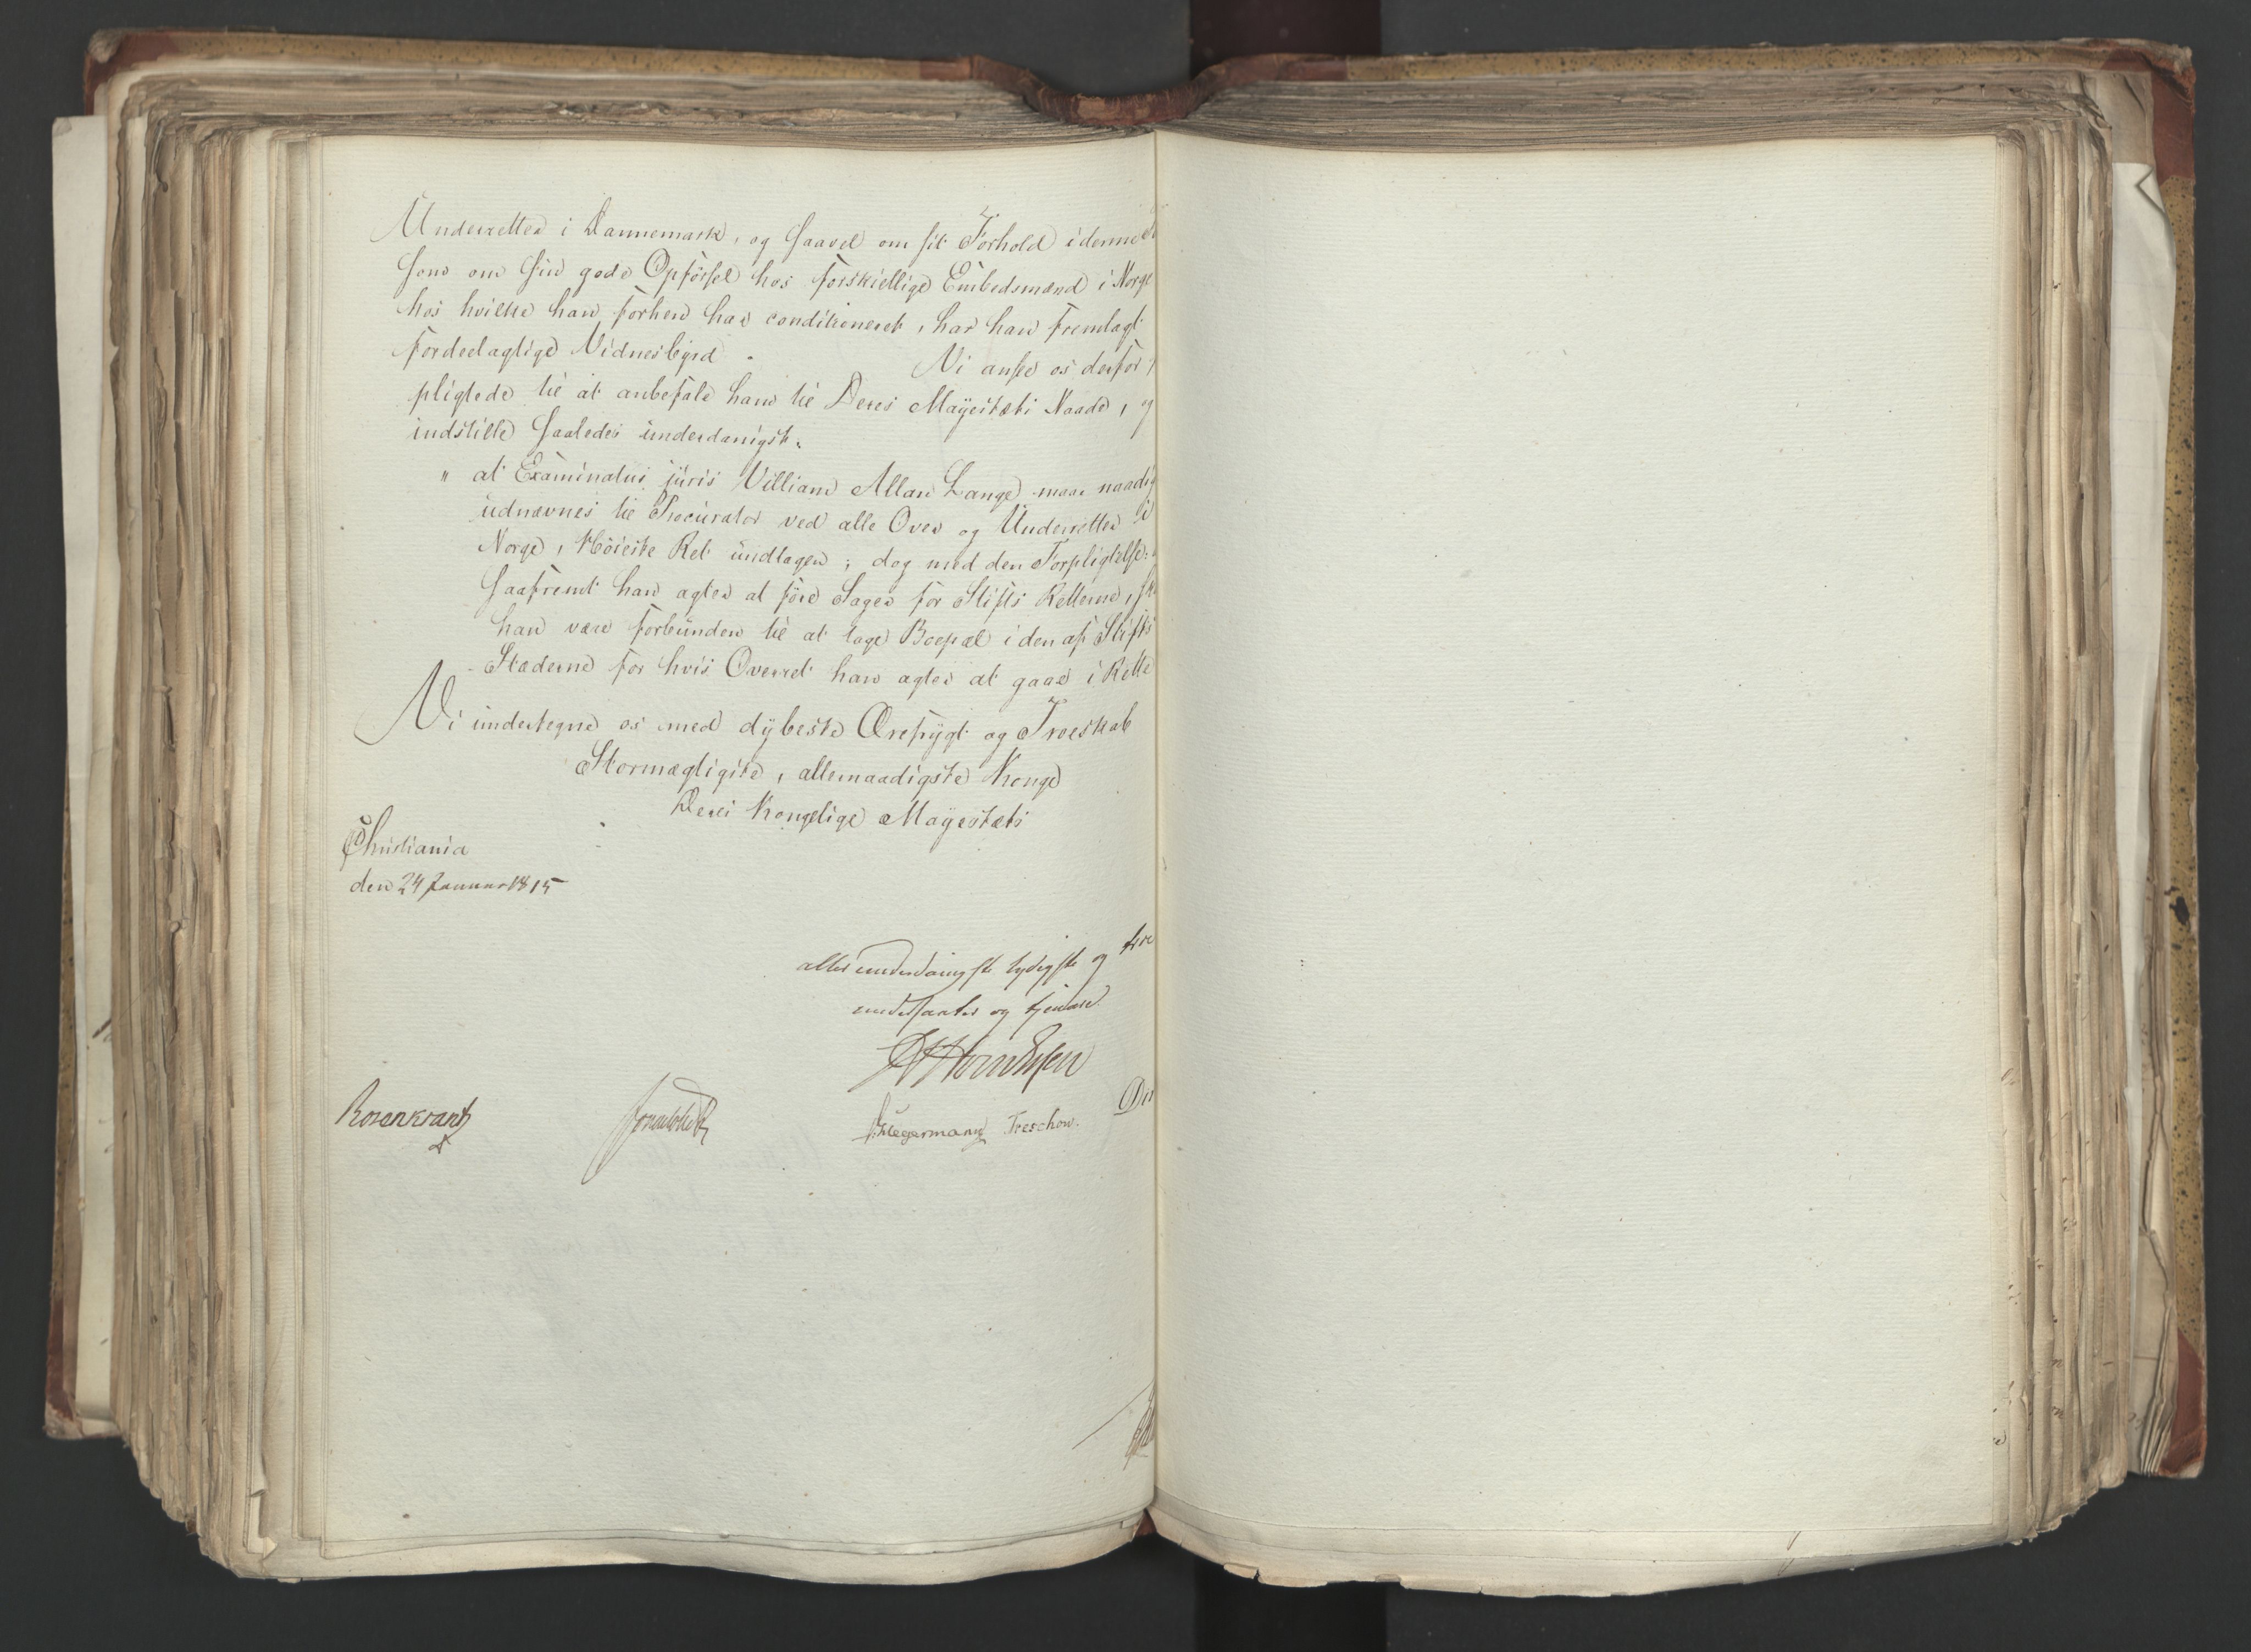 Underretter i Dannemark, og saavel om sit Forhold i denne
som om sin gode Opførsel hos forskiellige Embedsmænd i Norge
hos hvilke han forhen har conditioneret, har han fremlagt
fordeelagtige Vidnesbyrd. Vi ansee os derfor
pligtede til at anbefale ham til Deres Mayestæts Naade, og
indstille saaledes underdanigst:
" at Examinatus juris William Allan Lange maae naadig
udnævnes til Procurator ved alle Over og Underretter i
Norge, Høieste Ret undtagen; dog med den Forpligtelse:
saafremt han agter at føre Sager for Stifts Retterne,
han være forbunden til at tage Boepæl i den af Stifts
Stæderne for hvis Overret han agter at gaae i Rette
Vi undertegne os med dybeste Ærefrygt og Troeskab
Stormægtigste, allernaadigste Konge
Deres Kongelige Mayestæts
Christiania
den 24 Januar 1815
allerunderdanigste lydigste og troe
undersaatter og tjenere
Rosenkrantz
Hegermann Treschow.